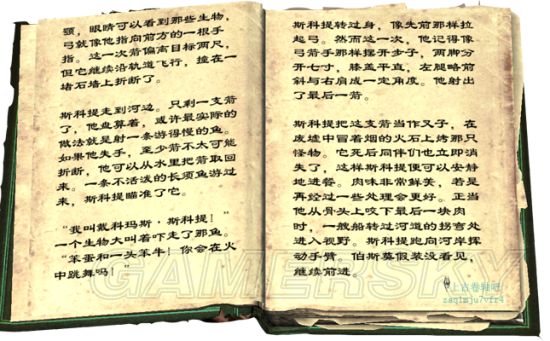 颚，眼睛可以看到那些生物，
弓就像他指向前方的一根手
指。这一次箭偏离目标两尺，
但它继续沿轨道飞行，撞在一
堵石墙上折断了。
斯科提走到河边。只剩一支箭
了，他盘算着，或许最实际的
做法就是射一条游得慢的鱼。
如果他失手，至少箭不太可能
折断，他可以从水里把箭取回
来。一条不活泼的长须鱼游过
来，斯科提瞄准了它。
“我叫戴科玛斯·斯科提！”
一个生物大叫着吓走了那鱼。
“笨蛋和一头笨牛！你会在火
中跳舞吗！”
斯科提转过身，像先前那样拉
起弓。然而这一次，他记得像
弓箭手那样摆开步子，两脚分
开七寸，膝盖平直，左腿略前
斜与右肩成一定角度。他射出
了最后一箭。
斯科提把这支箭当作叉子，在
废墟中冒着烟的火石上烤那只
怪物。它死后同伴们也立即消
失了，这样斯科提便可以安静
地进餐。肉味非常鲜美，若是
再经过一些处理会更好。正当
他从骨头上咬下最后一块肉
时，一艘船转过河道的拐弯处
进入视野。斯科提跑向河岸挥
动手臂。伯斯莫假装没看见，
继续前进。
GAMERSKY
上古卷轴吧
zaq1mju7vfr4